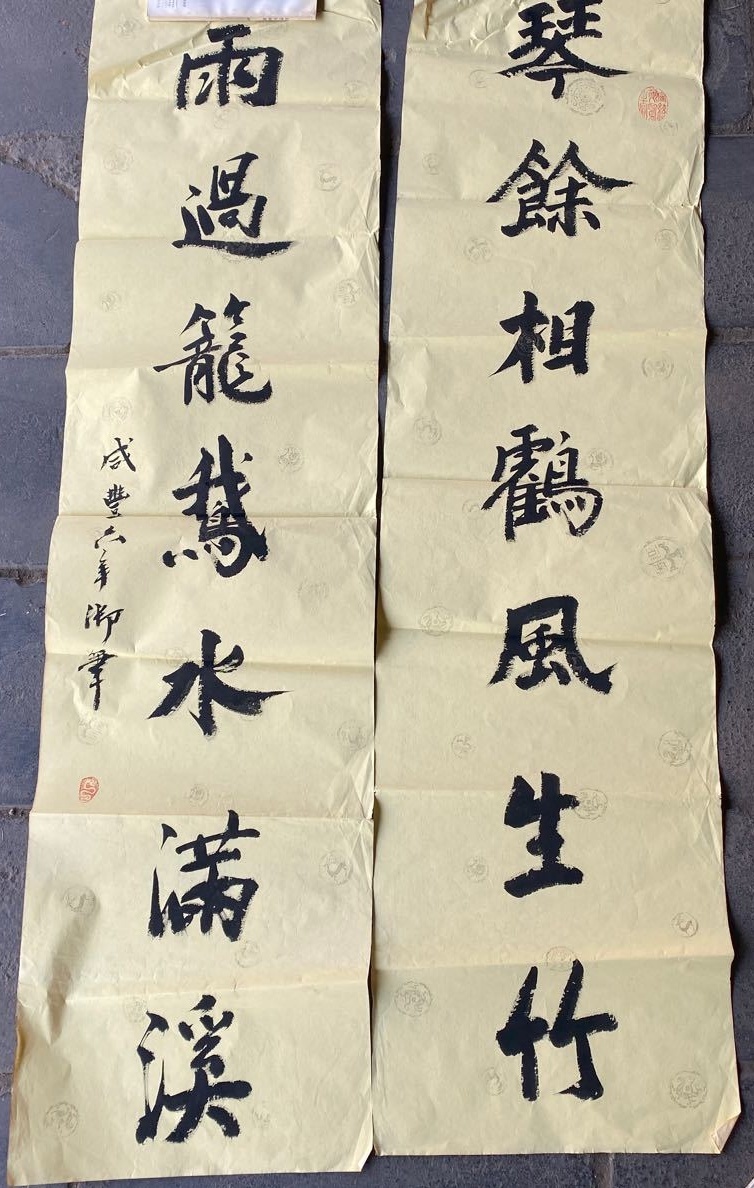 琴餘相鶴風生竹
雨過籠鵞水滿溪
咸豐六年御筆